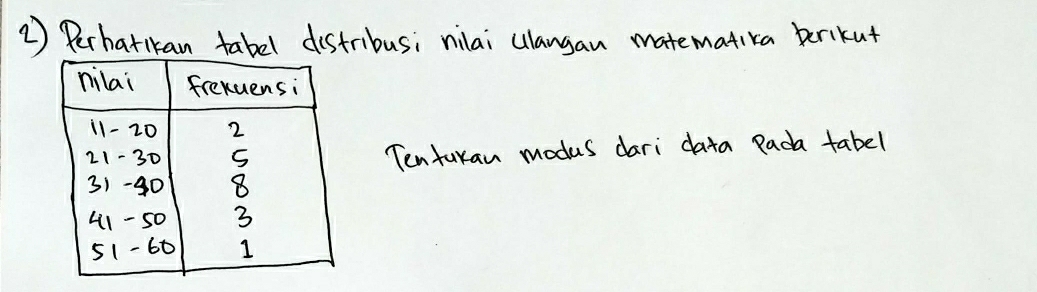 2) Perhatikan tabel distribusi nilai ulangan matematika berikut
nilai frekuensi
11-20 2
21-30 5
31-40 8
41-50 3
51-60 1
Tentukan modus dari data pada tabel